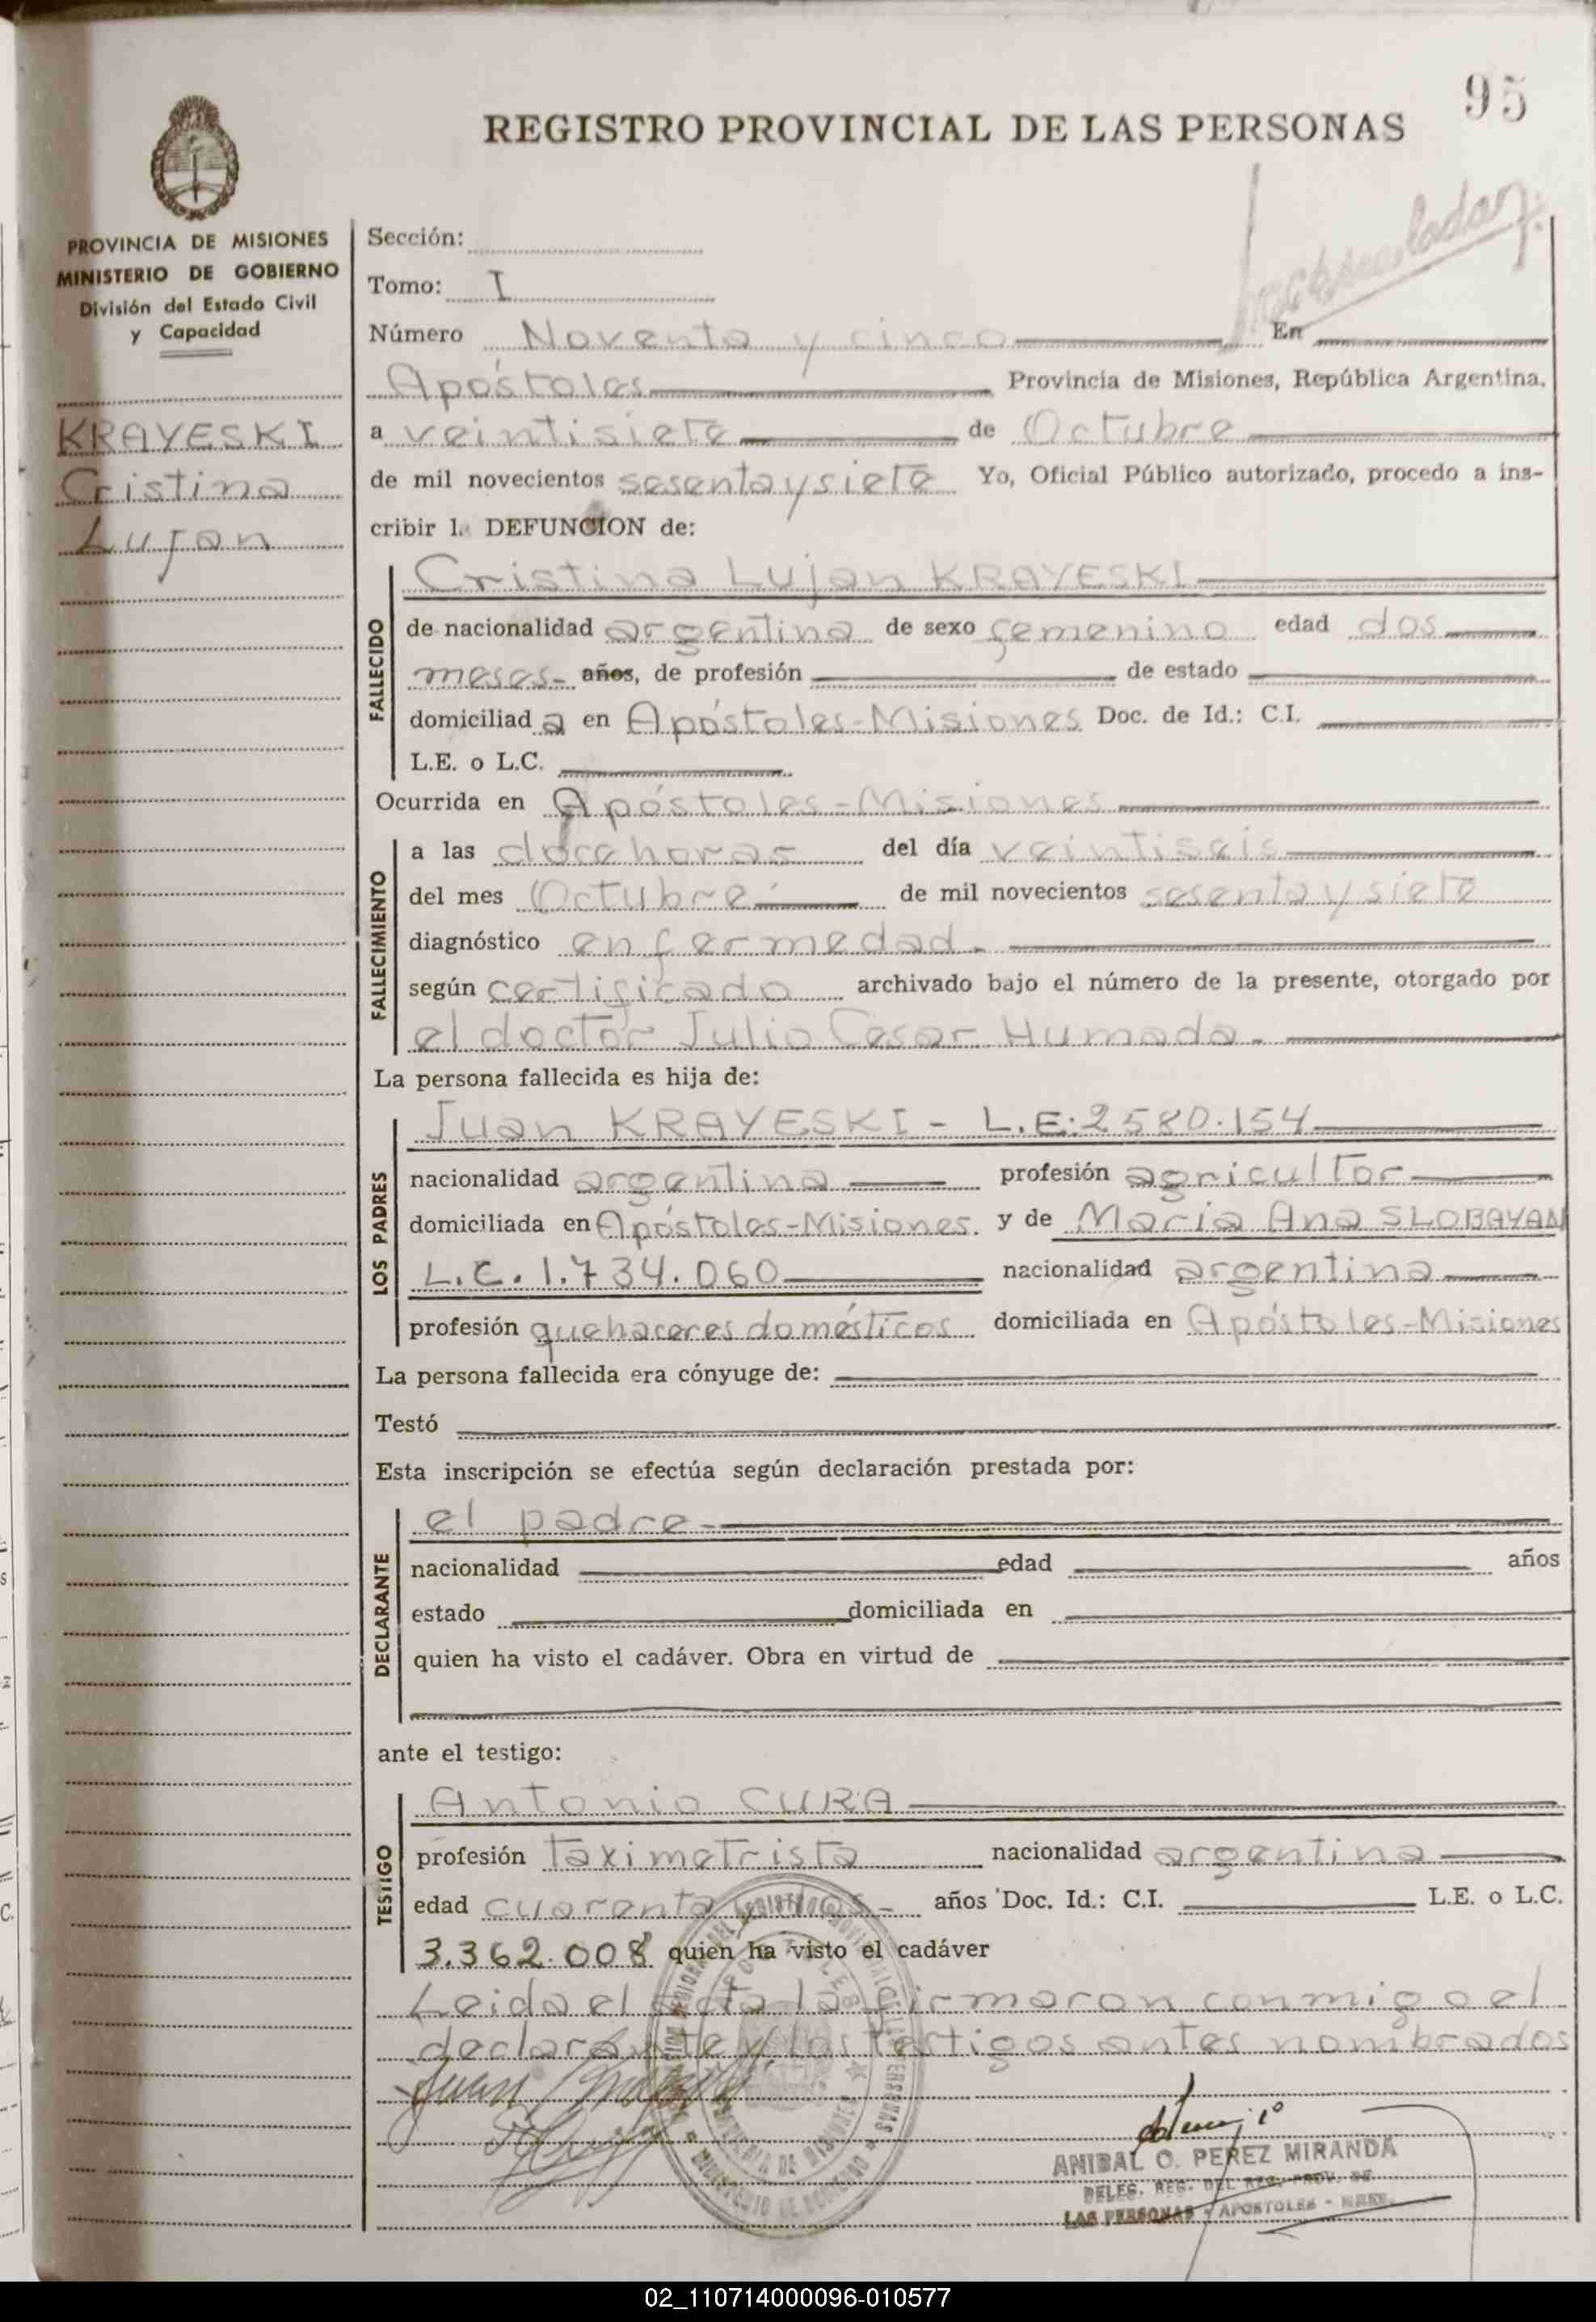 95
REGISTRO PROVINCIAL DE LAS PERSONAS
PROVINCIA DE MISIONES
MINISTERIO DE GOBIERNO
División del Estado Civil
y Capacidad
KRAYESKI
Cristina
Lujan
Sección:
Tomo: I
Número Noventa y cinco En
Apóstoles Provincia de Misiones, República Argentina,
a veintisiete de Octubre
de mil novecientos sesenta y siete Yo, Oficial Público autorizado, procedo a ins-
cribir l. DEFUNCION de:
FALLECIDO
Cristina Lujan KRAYESKI
de nacionalidad argentina de sexo femenino edad dos
meses- años, de profesión de estado
domiciliad a en Apóstoles-Misiones Doc. de Id.: C.I.
L.E. o L.C.
Ocurrida en Apóstoles-Misiones
FALLECIMIENTO
a las doce horas del día veintiseis
del mes Octubre de mil novecientos sesenta y siete
diagnóstico enfermedad.
según certificado archivado bajo el número de la presente, otorgado por
el doctor Julio Cesar Humada.
La persona fallecida es hija de:
LOS PADRES
Juan KRAYESKI - L.E:2580.154
nacionalidad argentina profesión agricultor
domiciliada en Apóstoles-Misiones. y de María Ana SLOBAYAN
L.C. 1.734.060 nacionalidad argentina
profesión quehaceres domésticos domiciliada en Apóstoles-Misiones
La persona fallecida era cónyuge de:
Testó
Esta inscripción se efectúa según declaración prestada por:
DECLARANTE
el padre-
nacionalidad edad años
estado domiciliada en
quien ha visto el cadáver. Obra en virtud de
ante el testigo:
TESTIGO
Antonio CURA
profesión taximetrista nacionalidad argentina
edad cuarenta años Doc. Id.: C.I. L.E. o L.C.
3.362.008 quien ha visto el cadáver
Leida el acta la firmaron conmigo el
declarante y los testigos antes nombrados
Juan
ANIBAL O. PEREZ MIRANDA
DELEG. REG. DEL REG. PROV. DE
LAS PERSONAS - APOSTOLES - MNES.
02_110714000096-010577